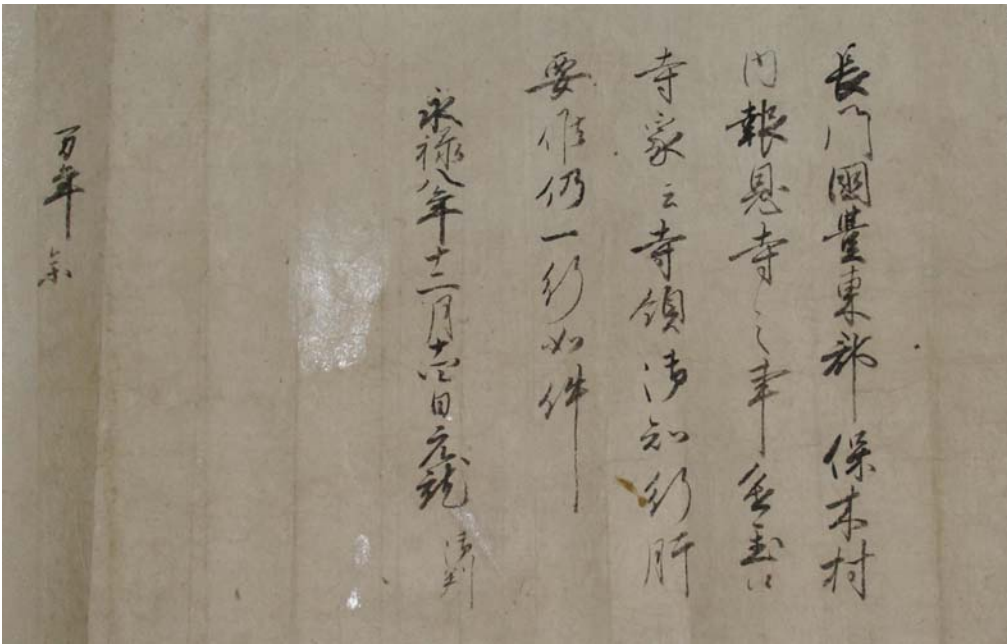 長門國豊東郡保木村
内報恩寺之事全
寺家云寺領御知行肝
要候仍一行如件
永禄八年十二月十四日 元就 御判
万年